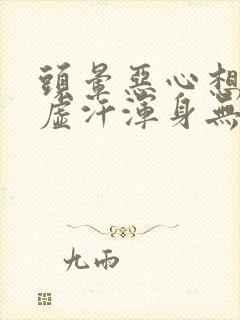 頭暈惡心想
虛汗渾身無
九雨